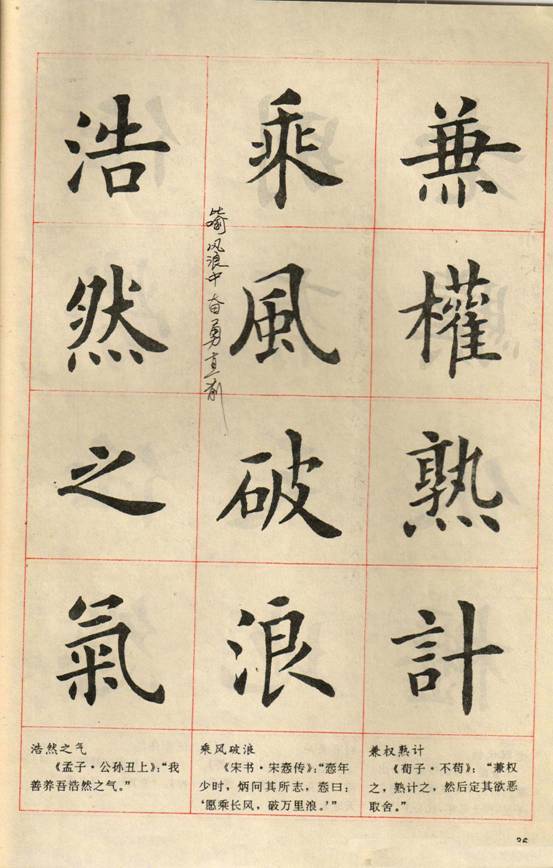 兼權熟計
乘風破浪
浩然之氣
比喻风浪中奋勇直前
兼权熟计
《荀子·不苟》：“兼权
之，熟计之，然后定其欲恶
取舍。”
乘风破浪
《宋书·宋悫传》：“悫年
少时，炳问其所志，悫曰：
‘愿乘长风，破万里浪。’”
浩然之气
《孟子·公孙丑上》：“我
善养吾浩然之气。”